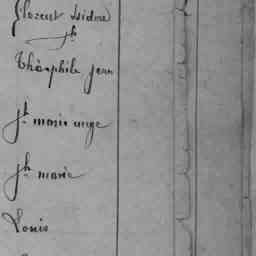 florent isidore
jh
théophile jean
jh marie ange
jh marie
Louis